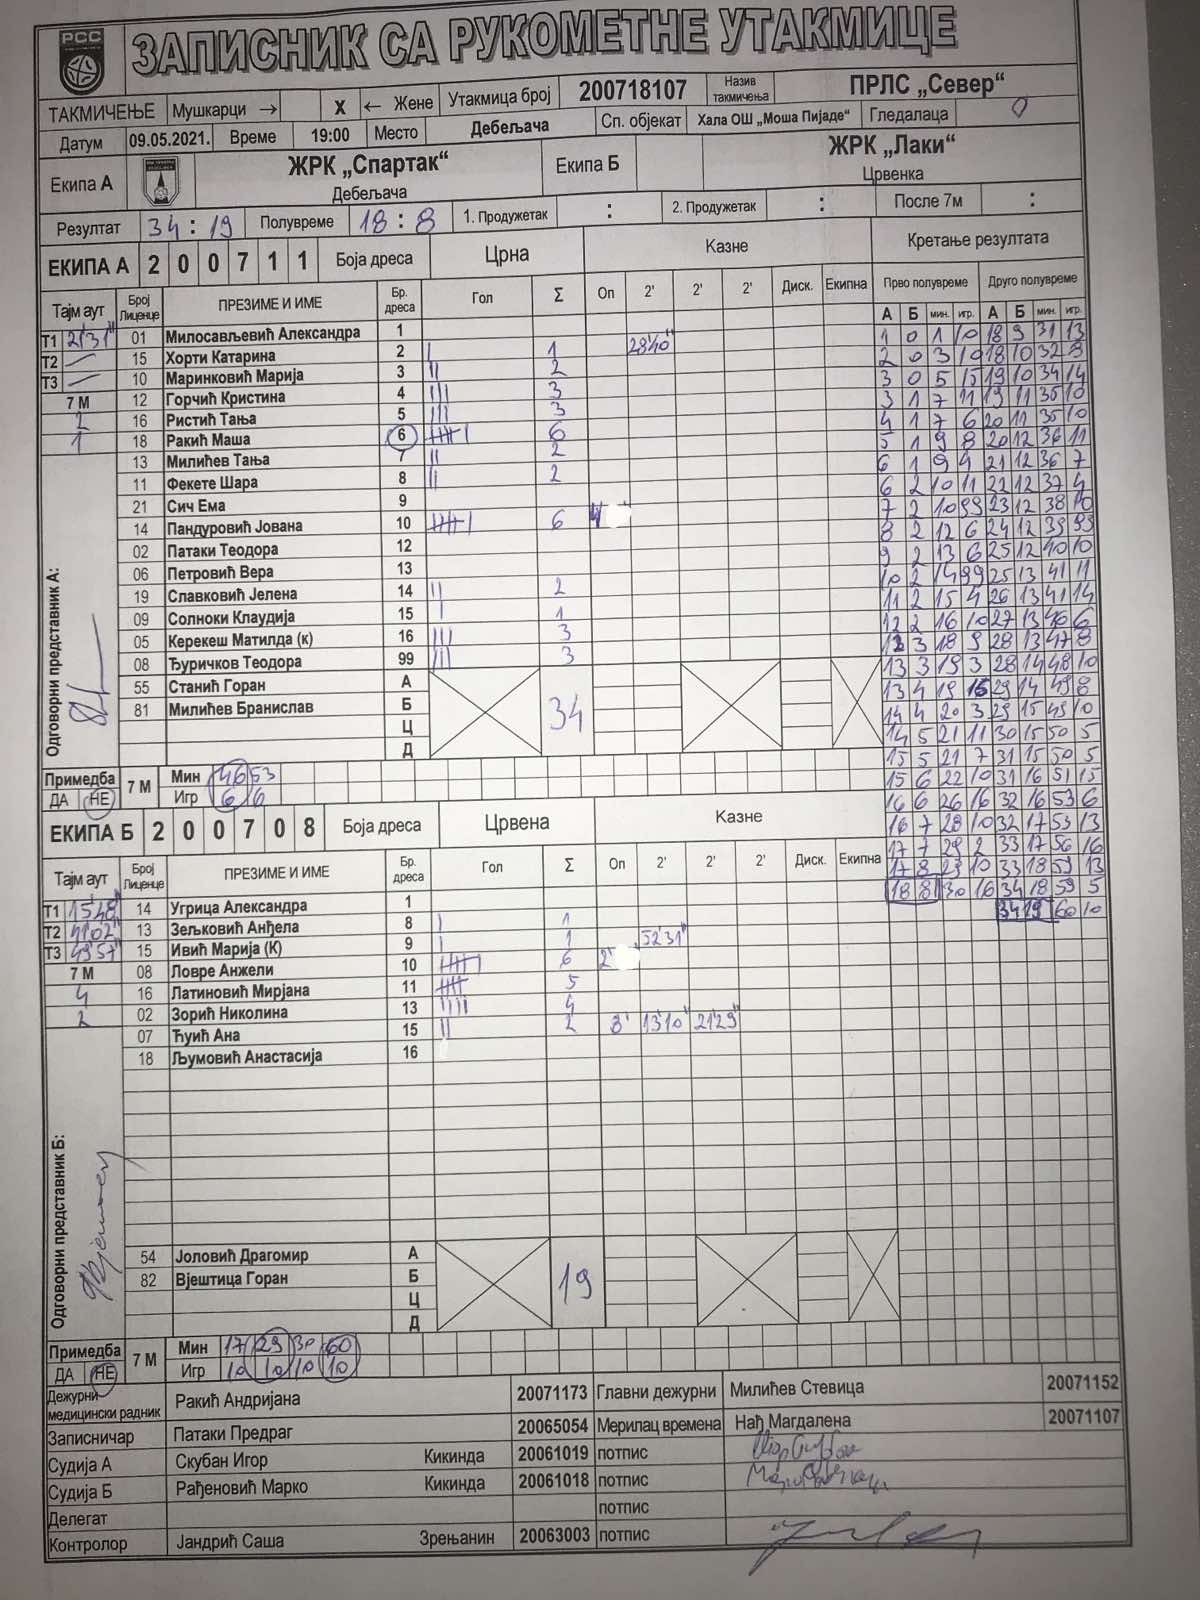 РСС
ЗАПИСНИК СА РУКОМЕТНЕ УТАКМИЦЕ
ТАКМИЧЕЊЕ Мушкарци → X ← Жене Утакмица број 200718107 Назив такмичења ПРЛС „Север“
Датум 09.05.2021. Време 19:00 Место Дебељача Сп. објекат Хала ОШ „Моша Пијаде“ Гледалаца 0
Екипа А ЖРК „Спартак“ Дебељача Екипа Б ЖРК „Лаки“ Црвенка
Резултат 34 : 19 Полувреме 18 : 8 1. Продужетак : 2. Продужетак : После 7м :
ЕКИПА А 2 0 0 7 1 1 Боја дреса Црна Казне Кретање резултата
Тајм аут Број Лиценце ПРЕЗИМЕ И ИМЕ Бр. дреса Гол Σ Оп 2' 2' 2' Диск. Екипна Прво полувреме Друго полувреме
А Б мин. игр. А Б мин. игр.
Т1 21'31" 01 Милосављевић Александра 1
Т2 — 15 Хорти Катарина 2 | 1 28'40"
Т3 — 10 Маринковић Марија 3 || 2
7 М 12 Горчић Кристина 4 ||| 3
2 16 Ристић Тања 5 ||| 3
1 18 Ракић Маша 6 6
13 Милићев Тања 7 || 2
11 Фекете Шара 8 || 2
21 Сич Ема 9
14 Пандуровић Јована 10 6
02 Патаки Теодора 12
06 Петровић Вера 13
19 Славковић Јелена 14 || 2
09 Солноки Клаудија 15 | 1
05 Керекеш Матилда (к) 16 ||| 3
08 Ђуричков Теодора 99 ||| 3
55 Станић Горан А
81 Милићев Бранислав Б
Ц
Д
34
Одговорни представник А:
1 0 1 10 18 9 31 13
2 0 3 10 18 10 32 8
3 0 5 15 19 10 34 14
3 1 7 11 19 11 35 10
4 1 7 6 20 11 35 10
5 1 9 8 20 12 36 11
6 1 9 4 21 12 36 7
6 2 10 11 22 12 37 4
7 2 10 99 23 12 38 10
8 2 12 6 24 12 39 99
9 2 13 6 25 12 40 10
10 2 14 99 25 13 41 11
11 2 15 4 26 13 41 14
12 2 16 10 27 13 46 6
12 3 18 9 28 13 47 8
13 3 19 3 28 14 48 10
13 4 19 15 29 14 49 8
14 4 20 3 29 15 49 10
14 5 21 11 30 15 50 5
15 5 21 7 31 15 50 5
15 6 22 10 31 16 51 15
16 6 26 16 32 16 53 6
16 7 28 10 32 17 53 13
17 7 29 2 33 17 56 16
17 8 29 10 33 18 59 13
18 8 30 16 34 18 59 5
34 19 60 10
Примедба ДА НЕ 7 М Мин 46 53
Игр 6 6
ЕКИПА Б 2 0 0 7 0 8 Боја дреса Црвена Казне
Тајм аут Број Лиценце ПРЕЗИМЕ И ИМЕ Бр. дреса Гол Σ Оп 2' 2' 2' Диск. Екипна
Т1 15'48" 14 Угрица Александра 1
Т2 41'02" 13 Зељковић Анђела 8 | 1
Т3 49'57" 15 Ивић Марија (К) 9 | 1 52'31"
7 М 08 Ловре Анжели 10 6 2'
4 16 Латиновић Мирјана 11 5
2 02 Зорић Николина 13 |||| 4
07 Ћуић Ана 15 || 2 8' 13'10" 21'29"
18 Љумовић Анастасија 16
54 Јоловић Драгомир А
82 Вјештица Горан Б
Ц
Д
19
Одговорни представник Б:
Примедба ДА НЕ 7 М Мин 17 29 30 60
Игр 10 10 10 10
Дежурни медицински радник Ракић Андријана 20071173 Главни дежурни Милићев Стевица 20071152
Записничар Патаки Предраг 20065054 Мерилац времена Нађ Магдалена 20071107
Судија А Скубан Игор Кикинда 20061019 потпис
Судија Б Рађеновић Марко Кикинда 20061018 потпис
Делегат потпис
Контролор Јандрић Саша Зрењанин 20063003 потпис